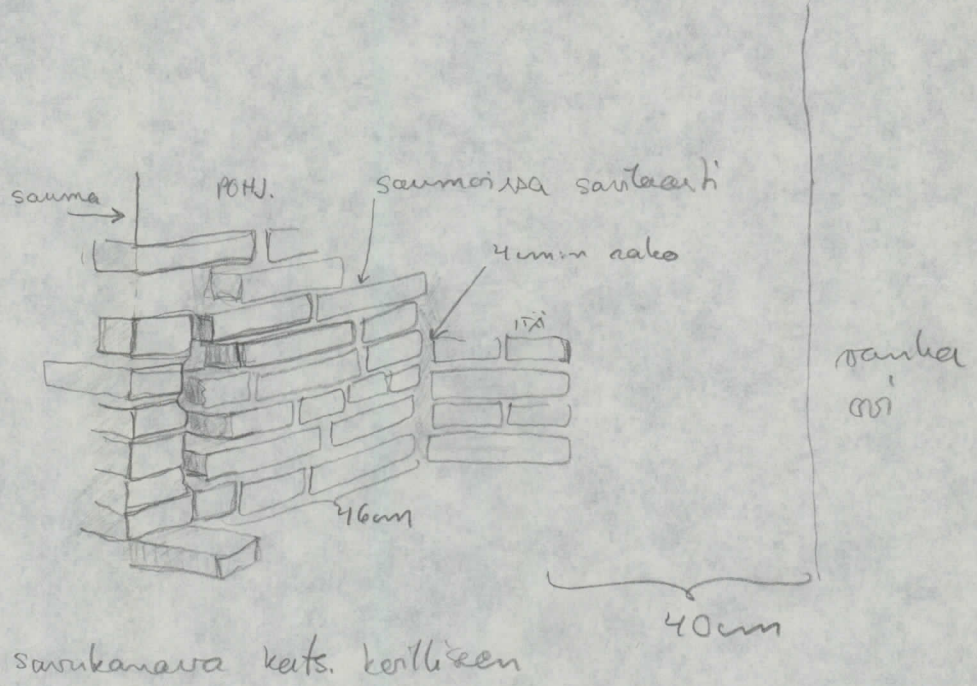 sauma
POHJ.
saumoissa savilaasti
4 cm:n rako
ITÄ
vanha
ovi
46cm
40cm
savukanava kats. koilliseen